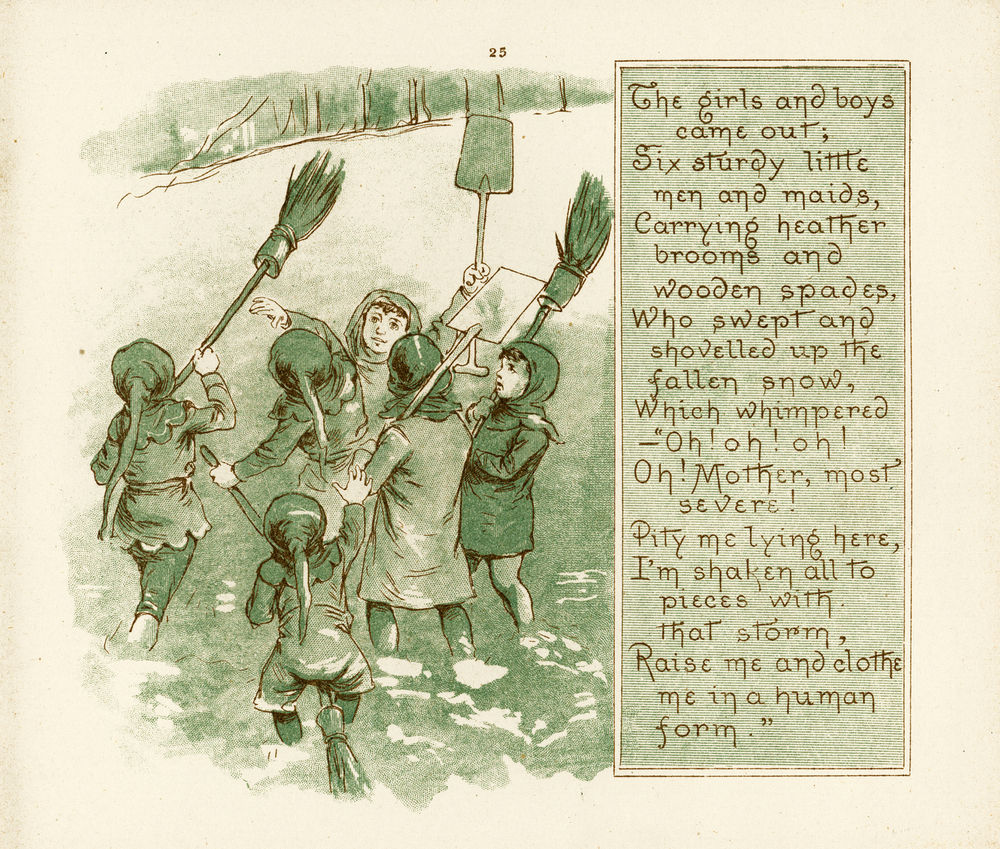 25
The girls and boys
came out;
Six sturdy little
men and maids,
Carrying heather
brooms and
wooden spades,
Who swept and
shovelled up the
fallen snow,
Which whimpered
—"Oh! oh! oh!
Oh! Mother, most
severe!
Pity me lying here,
I'm shaken all to
pieces with
that storm,
Raise me and clothe
me in a human
form."